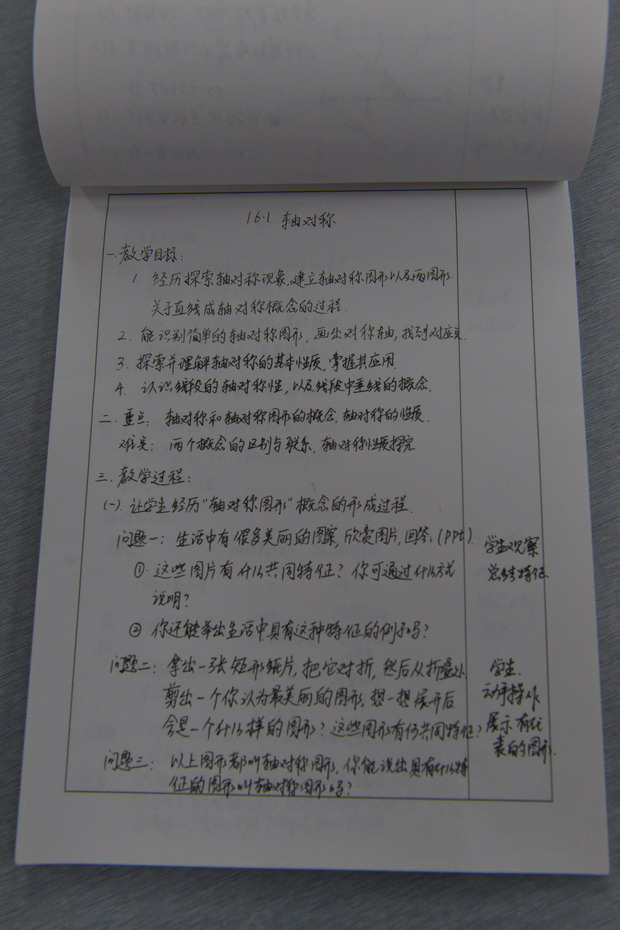 16.1. 轴对称
一.教学目标:
1. 经历探索轴对称现象,建立轴对称图形以及两图形
关于直线成轴对称概念的过程.
2. 能识别简单的轴对称图形,画出对称轴,找到对应点.
3. 探索并理解轴对称的基本性质,掌握其应用.
4. 认识线段的轴对称性,以及线段中垂线的概念.
二.重点: 轴对称和轴对称图形的概念.轴对称的性质.
难点: 两个概念的区别与联系.轴对称性质探究.
三.教学过程:
(一).让学生经历“轴对称图形”概念的形成过程.
问题一: 生活中有很多美丽的图案,欣赏图片,回答.(PPt).
①.这些图片有什么共同特征?你可通过什么方式
说明?
② 你还能举出生活中具有这种特征的例子吗?
学生观察
总结特征.
问题二: 拿出一张矩形纸片,把它对折,然后从折叠处
剪出一个你认为最美丽的图形.想一想展开后
会是一个什么样的图形?这些图形有何共同特征?
学生.
动手操作
展示有代
表的图形.
问题三: 以上图形都叫轴对称图形.你能说出具有什么特
征的图形叫轴对称图形吗?